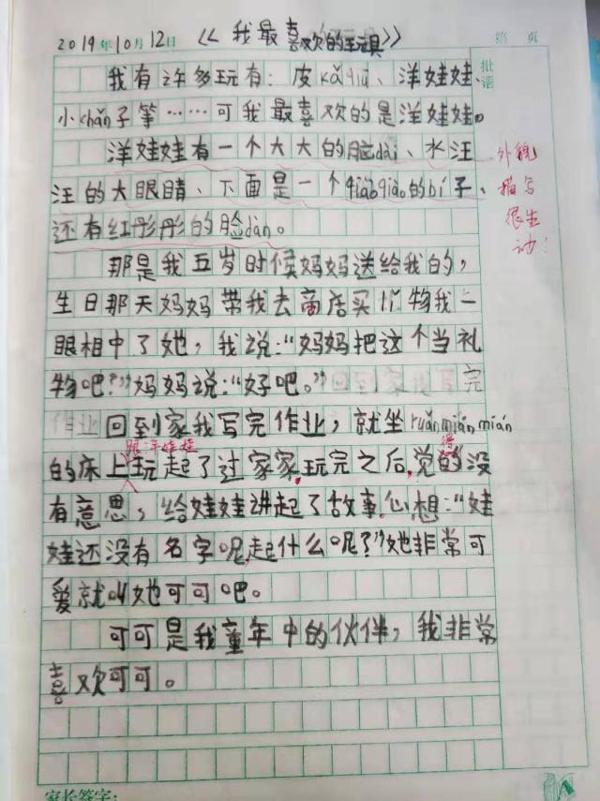 2019年10月12日《我最喜欢的玩具》
第 页
批语
我有许多玩有：皮kǎqiū、洋娃娃、
小chǎn子等……可我最喜欢的是洋娃娃。
洋娃娃有一个大大的脑dài、水汪
汪的大眼睛、下面是一个qiàoqiào的bí子、
还有红彤彤的脸dàn。
外貌
描写
很生
动！
那是我五岁时候妈妈送给我的，
生日那天妈妈带我去商店买礼物我一
眼相中了她，我说：“妈妈把这个当礼
物吧？”妈妈说：“好吧。”回到家我写完
作业回到家我写完作业，就坐ruǎnmiánmián
跟洋娃娃 得
的床上玩起了过家家，玩完之后，觉的没
有意思，给娃娃讲起了故事，心想：“娃
娃还没有名字呢，起什么呢？”她非常可
爱就叫她可可吧。
可可是我童年中的伙伴，我非常
喜欢可可。
家长签字：